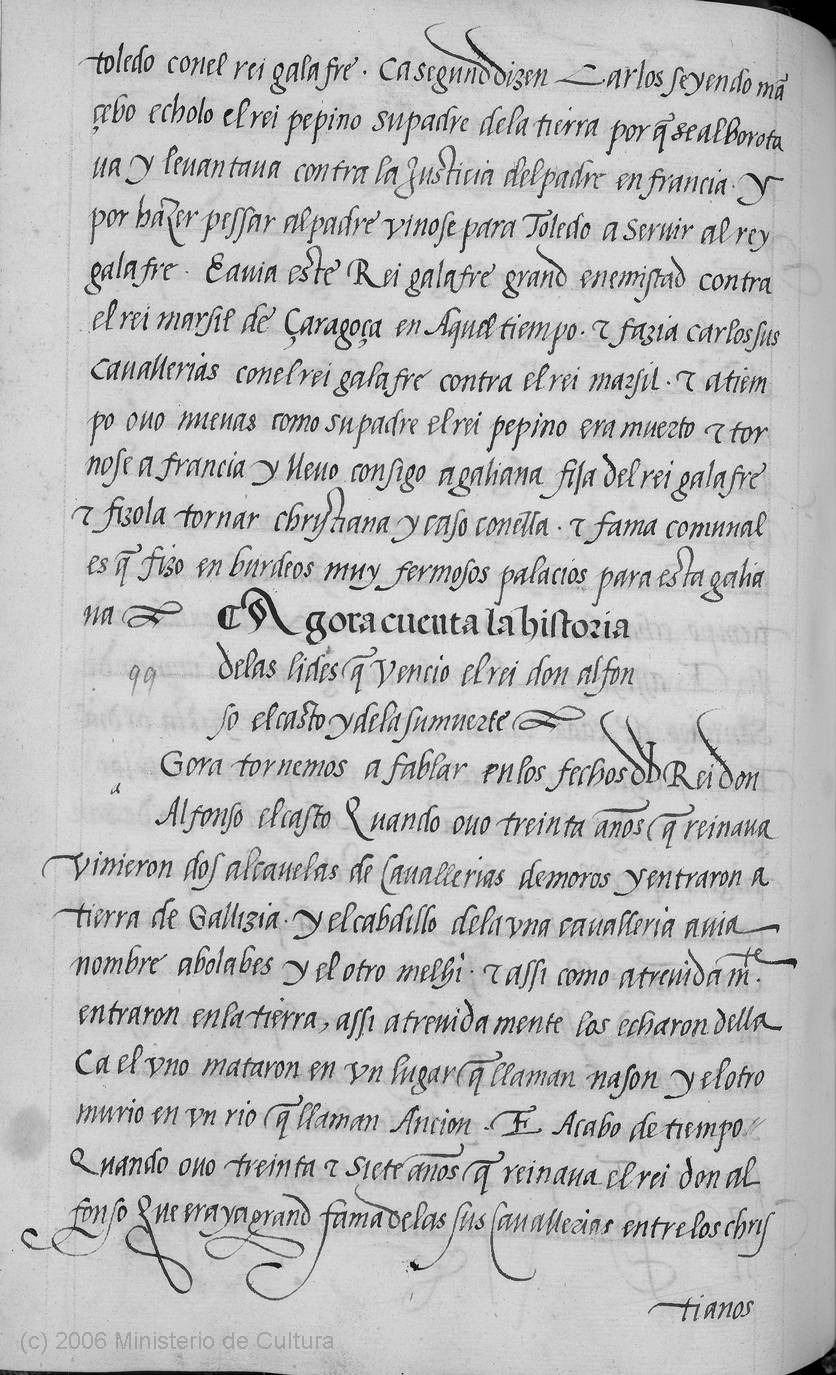 toledo con el rei galafre. Ca segund dizen Carlos seyendo mã
çebo echolo el rei pepino su padre de la tierra por q̃ se alborota
ua y levantava contra la Justicia del padre en francia. Y
por hazer pessar al padre vinose para Toledo a servir al rey
galafre. E avia este Rei galafre grand enemistad contra
el rei marsil de Çaragoça en Aquel tiempo. τ fazia carlos sus
cavallerias con el rei galafre contra el rei marsil. τ a tiem
po ovo nuevas como su padre el rei pepino era muerto τ tor
nose a francia y llevo consigo a galiana fija del rei galafre
τ fizola tornar christiana y caso con ella. τ fama comunal
es q̃ fizo en burdeos muy fermosos palacios para esta galia
na
Agora cuenta la historia
99 de las lides q̃ Vencio el rei don alfon
so el casto y de la su muerte
a Gora tornemos a fablar en los fechos dl Rei don
Alfonso el casto Quando ovo treinta años q̃ reinava
vinieron dos alcavelas de Cavallerias de moros y entraron a
tierra de Gallizia. y el cabdillo de la vna cavalleria avia
nombre abolabes y el otro melhi. τ assi como atrevida m̃te.
entraron en la tierra, assi atrevida mente los echaron della
Ca el vno mataron en vn lugar q̃ llaman nason y el otro
murio en vn rio q̃ llaman Ancion. E Acabo de tiempo
Quando ovo treinta τ siete años q̃ reinava el rei don al
fonso Que era ya grand fama de las sus Cavallerias entre los chris
tianos
(c) 2006 Ministerio de Cultura